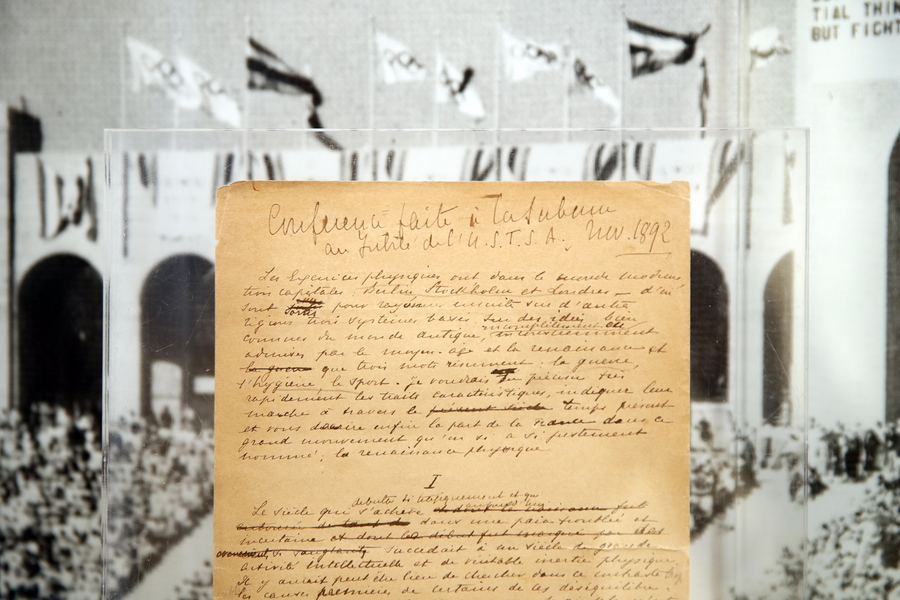 TIAL THIN
BUT FIGHT
Conférence faite à la Sorbonne
au Jubilé de l'U.S.F.S.A. Nov. 1892
Les exercices physiques ont dans le monde moderne
trois capitales: Berlin Stockholm et Londres — d'où
sont sortis pour rayonner ensuite sur d'autres
trois systèmes basés sur des idées bien
connues du monde antique, incomplètement et
admises par le moyen-âge et la renaissance et
la guerre que trois mots résument: la guerre,
l'hygiène, le sport. je voudrais en préciser très
rapidement les traits caractéristiques, indiquer leur
marche à travers le présent siècle temps présent
et vous décrire enfin la part de la France dans ce
grand mouvement qu'on a si justement
nommé: la renaissance physique
I
débutés si tragiquement et qui
Le siècle qui s'achève
dans une paix troublée et
incertaine
si sanglants, succédait à un siècle de grande
activité intellectuelle et de véritable inertie physique.
Il y aurait peut être lieu de chercher dans ce contraste
les causes premières de certains de ces déséquilibres